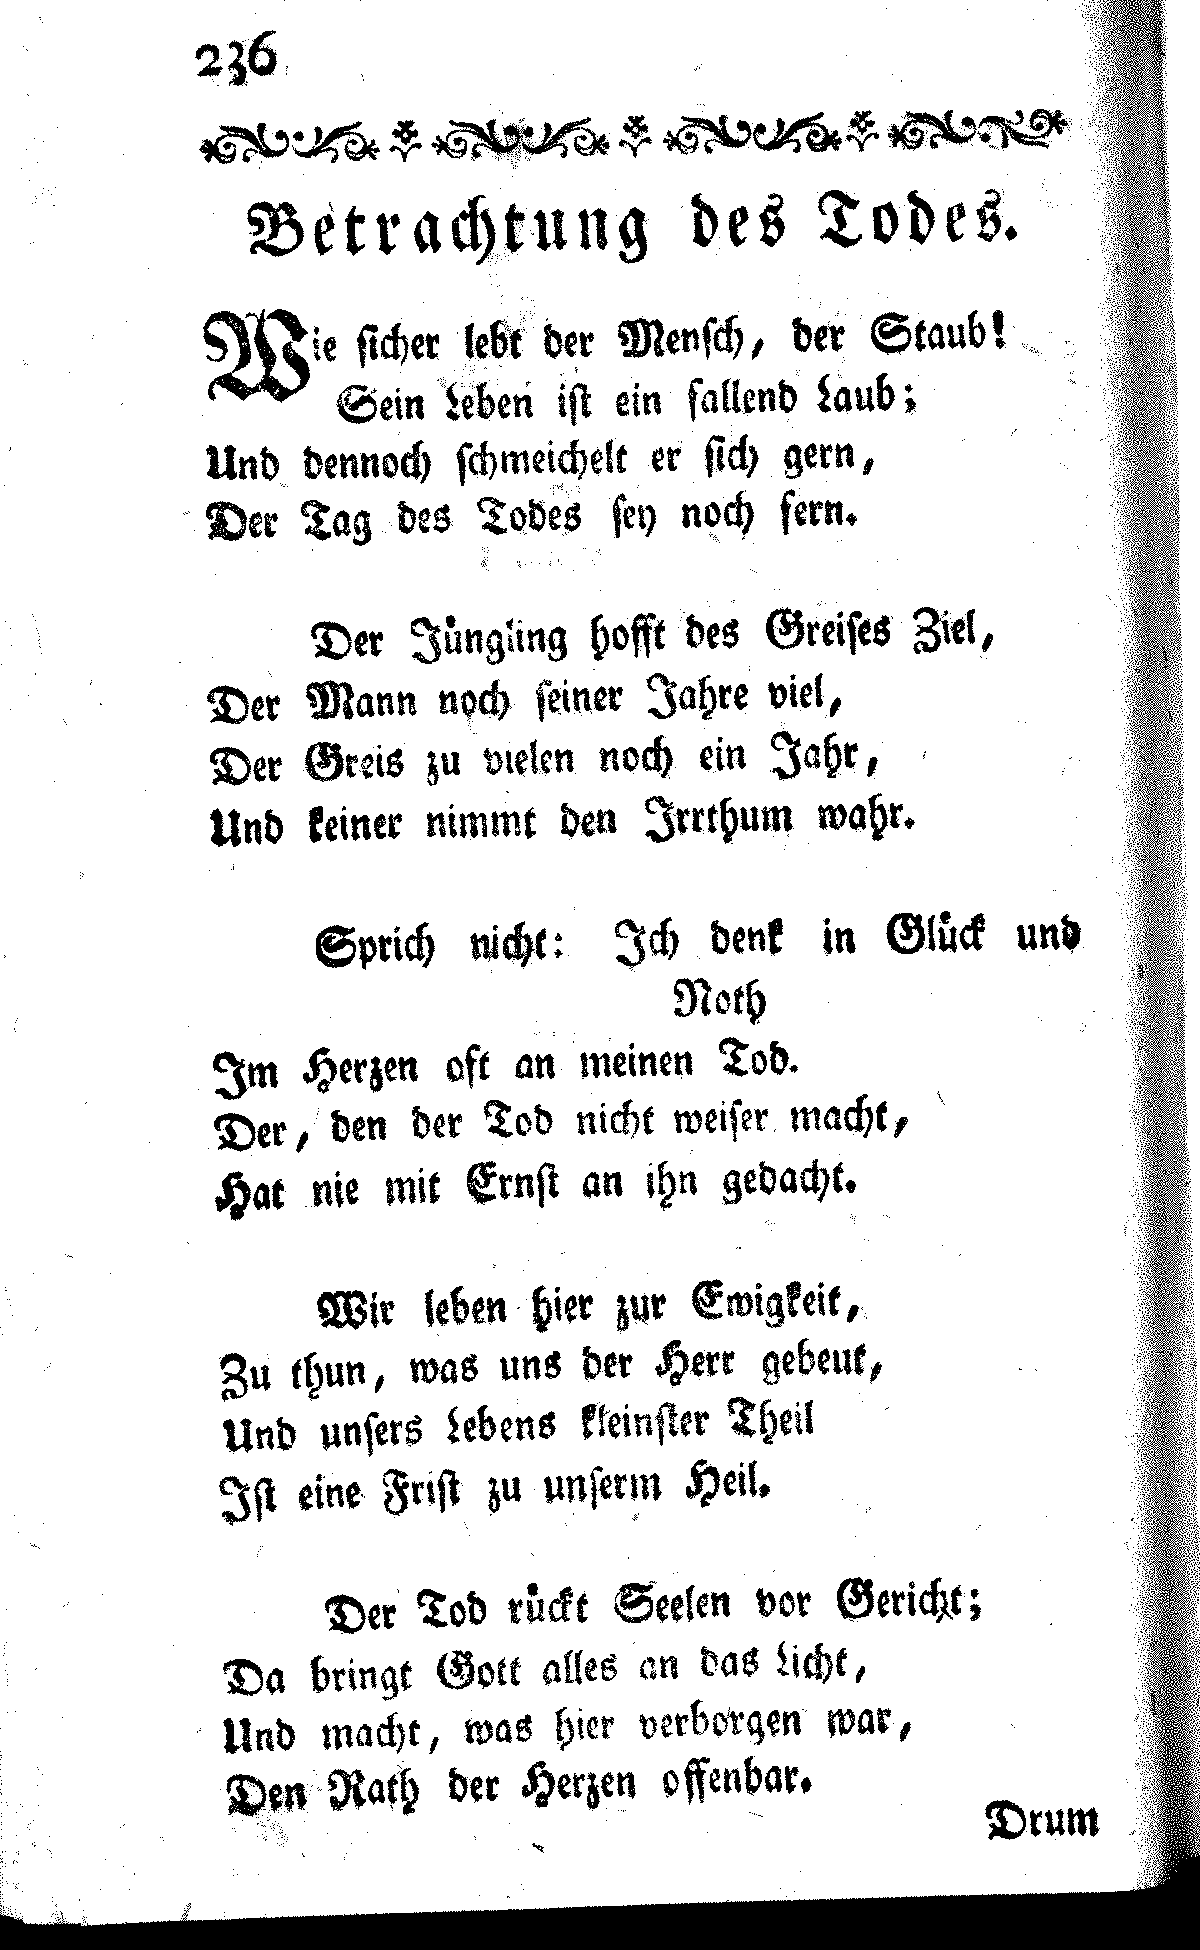 236
Betrachtung des Todes.
Wie sicher lebt der Mensch, der Staub!
Sein Leben ist ein fallend Laub;
Und dennoch schmeichelt er sich gern,
Der Tag des Todes sey noch fern.
Der Jüngling hofft des Greises Ziel,
Der Mann noch seiner Jahre viel,
Der Greis zu vielen noch ein Jahr,
Und keiner nimmt den Irrthum wahr.
Sprich nicht: Ich denk in Glück und
Noth
Im Herzen oft an meinen Tod.
Der, den der Tod nicht weiser macht,
Hat nie mit Ernst an ihn gedacht.
Wir leben hier zur Ewigkeit,
Zu thun, was uns der Herr gebeut,
Und unsers Lebens kleinster Theil
Ist eine Frist zu unserm Heil.
Der Tod rückt Seelen vor Gericht;
Da bringt Gott alles an das Licht,
Und macht, was hier verborgen war,
Den Rath der Herzen offenbar.
Drum